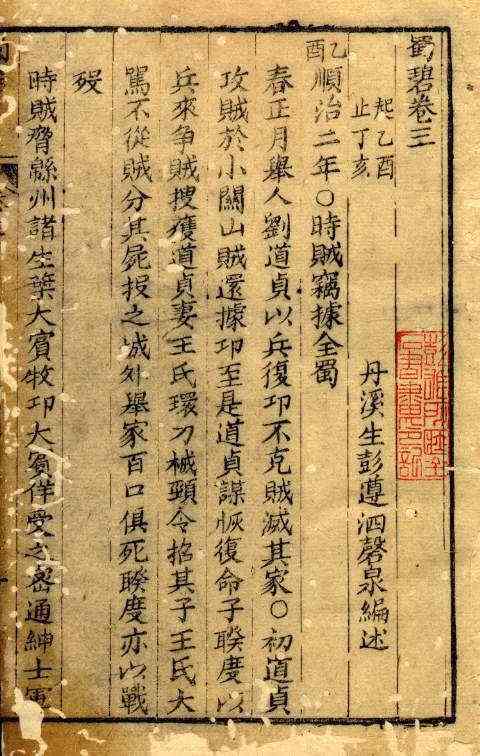 蜀碧卷三
起乙酉
止丁亥
丹溪生彭遵泗磬泉編述
乙酉
順治二年○時賊竊據全蜀
春正月舉人劉道貞以兵復邛不克賊滅其家○初道貞
攻賊於小關山賊還據邛至是道貞謀恢復命子睽度以
兵來争賊搜獲道貞妻王氏環刀械頸令招其子王氏大
罵不從賊分其屍投之城外舉家百口俱死睽度亦以戰
殁
時賊脅緜州諸生葉大賓牧邛大賓佯受之密通紳士軍